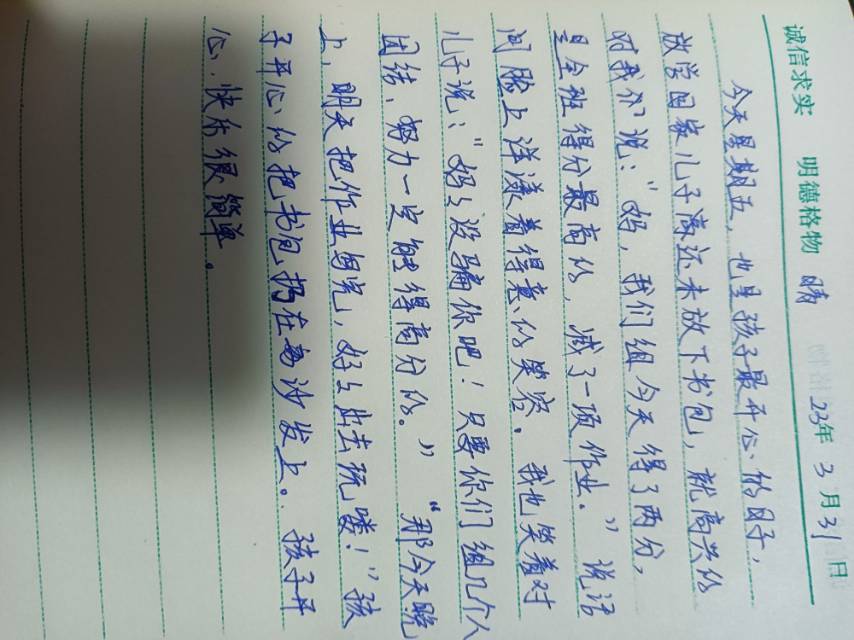 诚信求实 明德格物 晴 23年3月31日
今天星期五，也是孩子最开心的日子，
放学回家儿子还未放下书包，就高兴的
对我们说：“妈，我们组今天得了两分，
是全班得分最高的，减了一项作业。”说话
间脸上洋漾着得意的笑容。我也笑着对
儿子说：“妈妈没骗你吧！只要你们组几个人
团结，努力一定能得高分的。”“那今天晚
上，明天把作业写完，好好出去玩喽！”孩
子开心的把书包扔在沙发上。孩子开
心，快乐很简单。